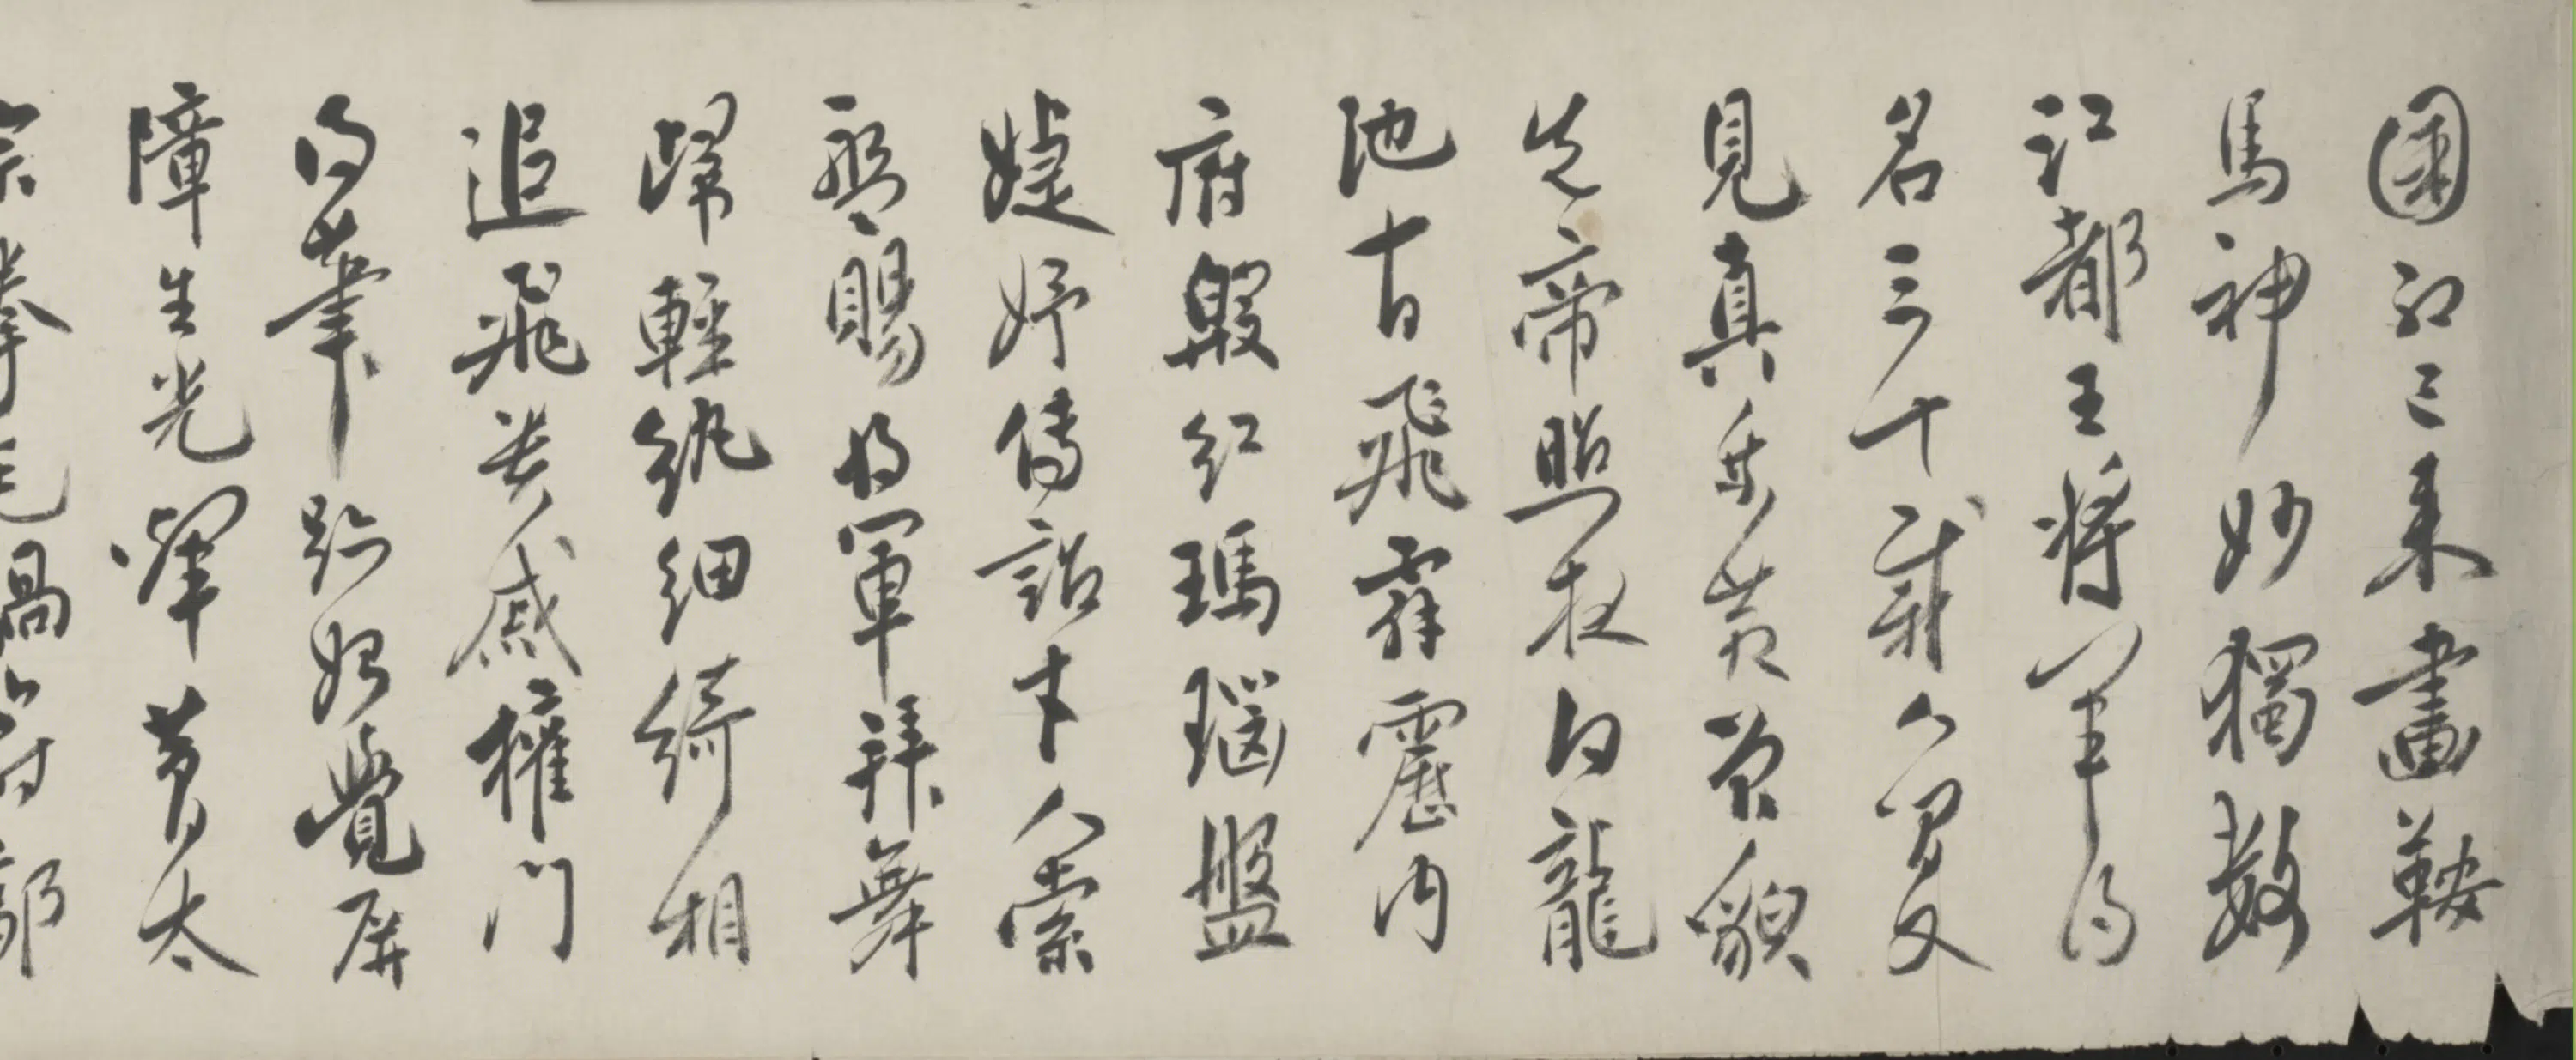 國初已來畫鞍
馬神妙獨數
江都王將軍得
名三十載人間又
見真乘黃曾貌
先帝照夜白龍
池十日飛霹靂內
府殷紅瑪瑙盤
婕妤傳詔才人索
盌賜將軍拜舞
歸輕紈細綺相
追飛貴戚權門
得筆跡始覺屏
障生光輝昔日太
宗拳毛騧時郭